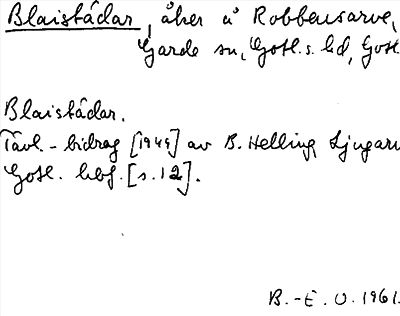 Blaistädar, åker å Robbensarve,
Garde sn, Gotl. s. hd, Gotl
Blaistädar.
Tävl.-bidrag [1949] av B. Helling, Ljugarn
Gotl. hbf. [s. 12].
B.-E. O. 1961.